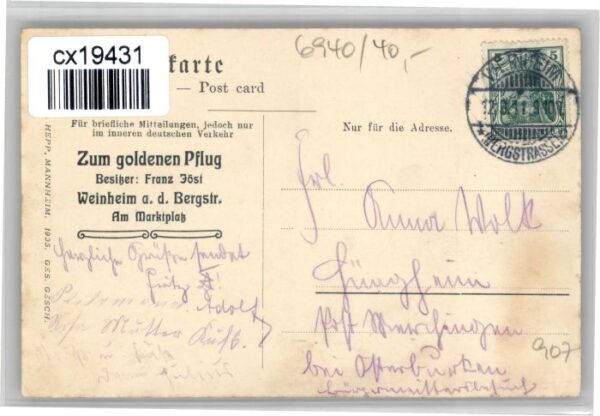 cx19431
6940/40,-
karte
— Post card
Für briefliche Mitteilungen, jedoch nur
im inneren deutschen Verkehr
Nur für die Adresse.
HEPP, MANNHEIM. 1935. GES. GESCH.
Zum goldenen Pflug
Besitzer: Franz Jöst
Weinheim a. d. Bergstr.
Am Marktplatz
WEINHEIM
BERGSTRASSE
5
Herzliche Grüße sendet
Adolf
Mutter
Frl.
Anna Wolk
Hüngheim
Post Merchingen
bei Osterburken
907